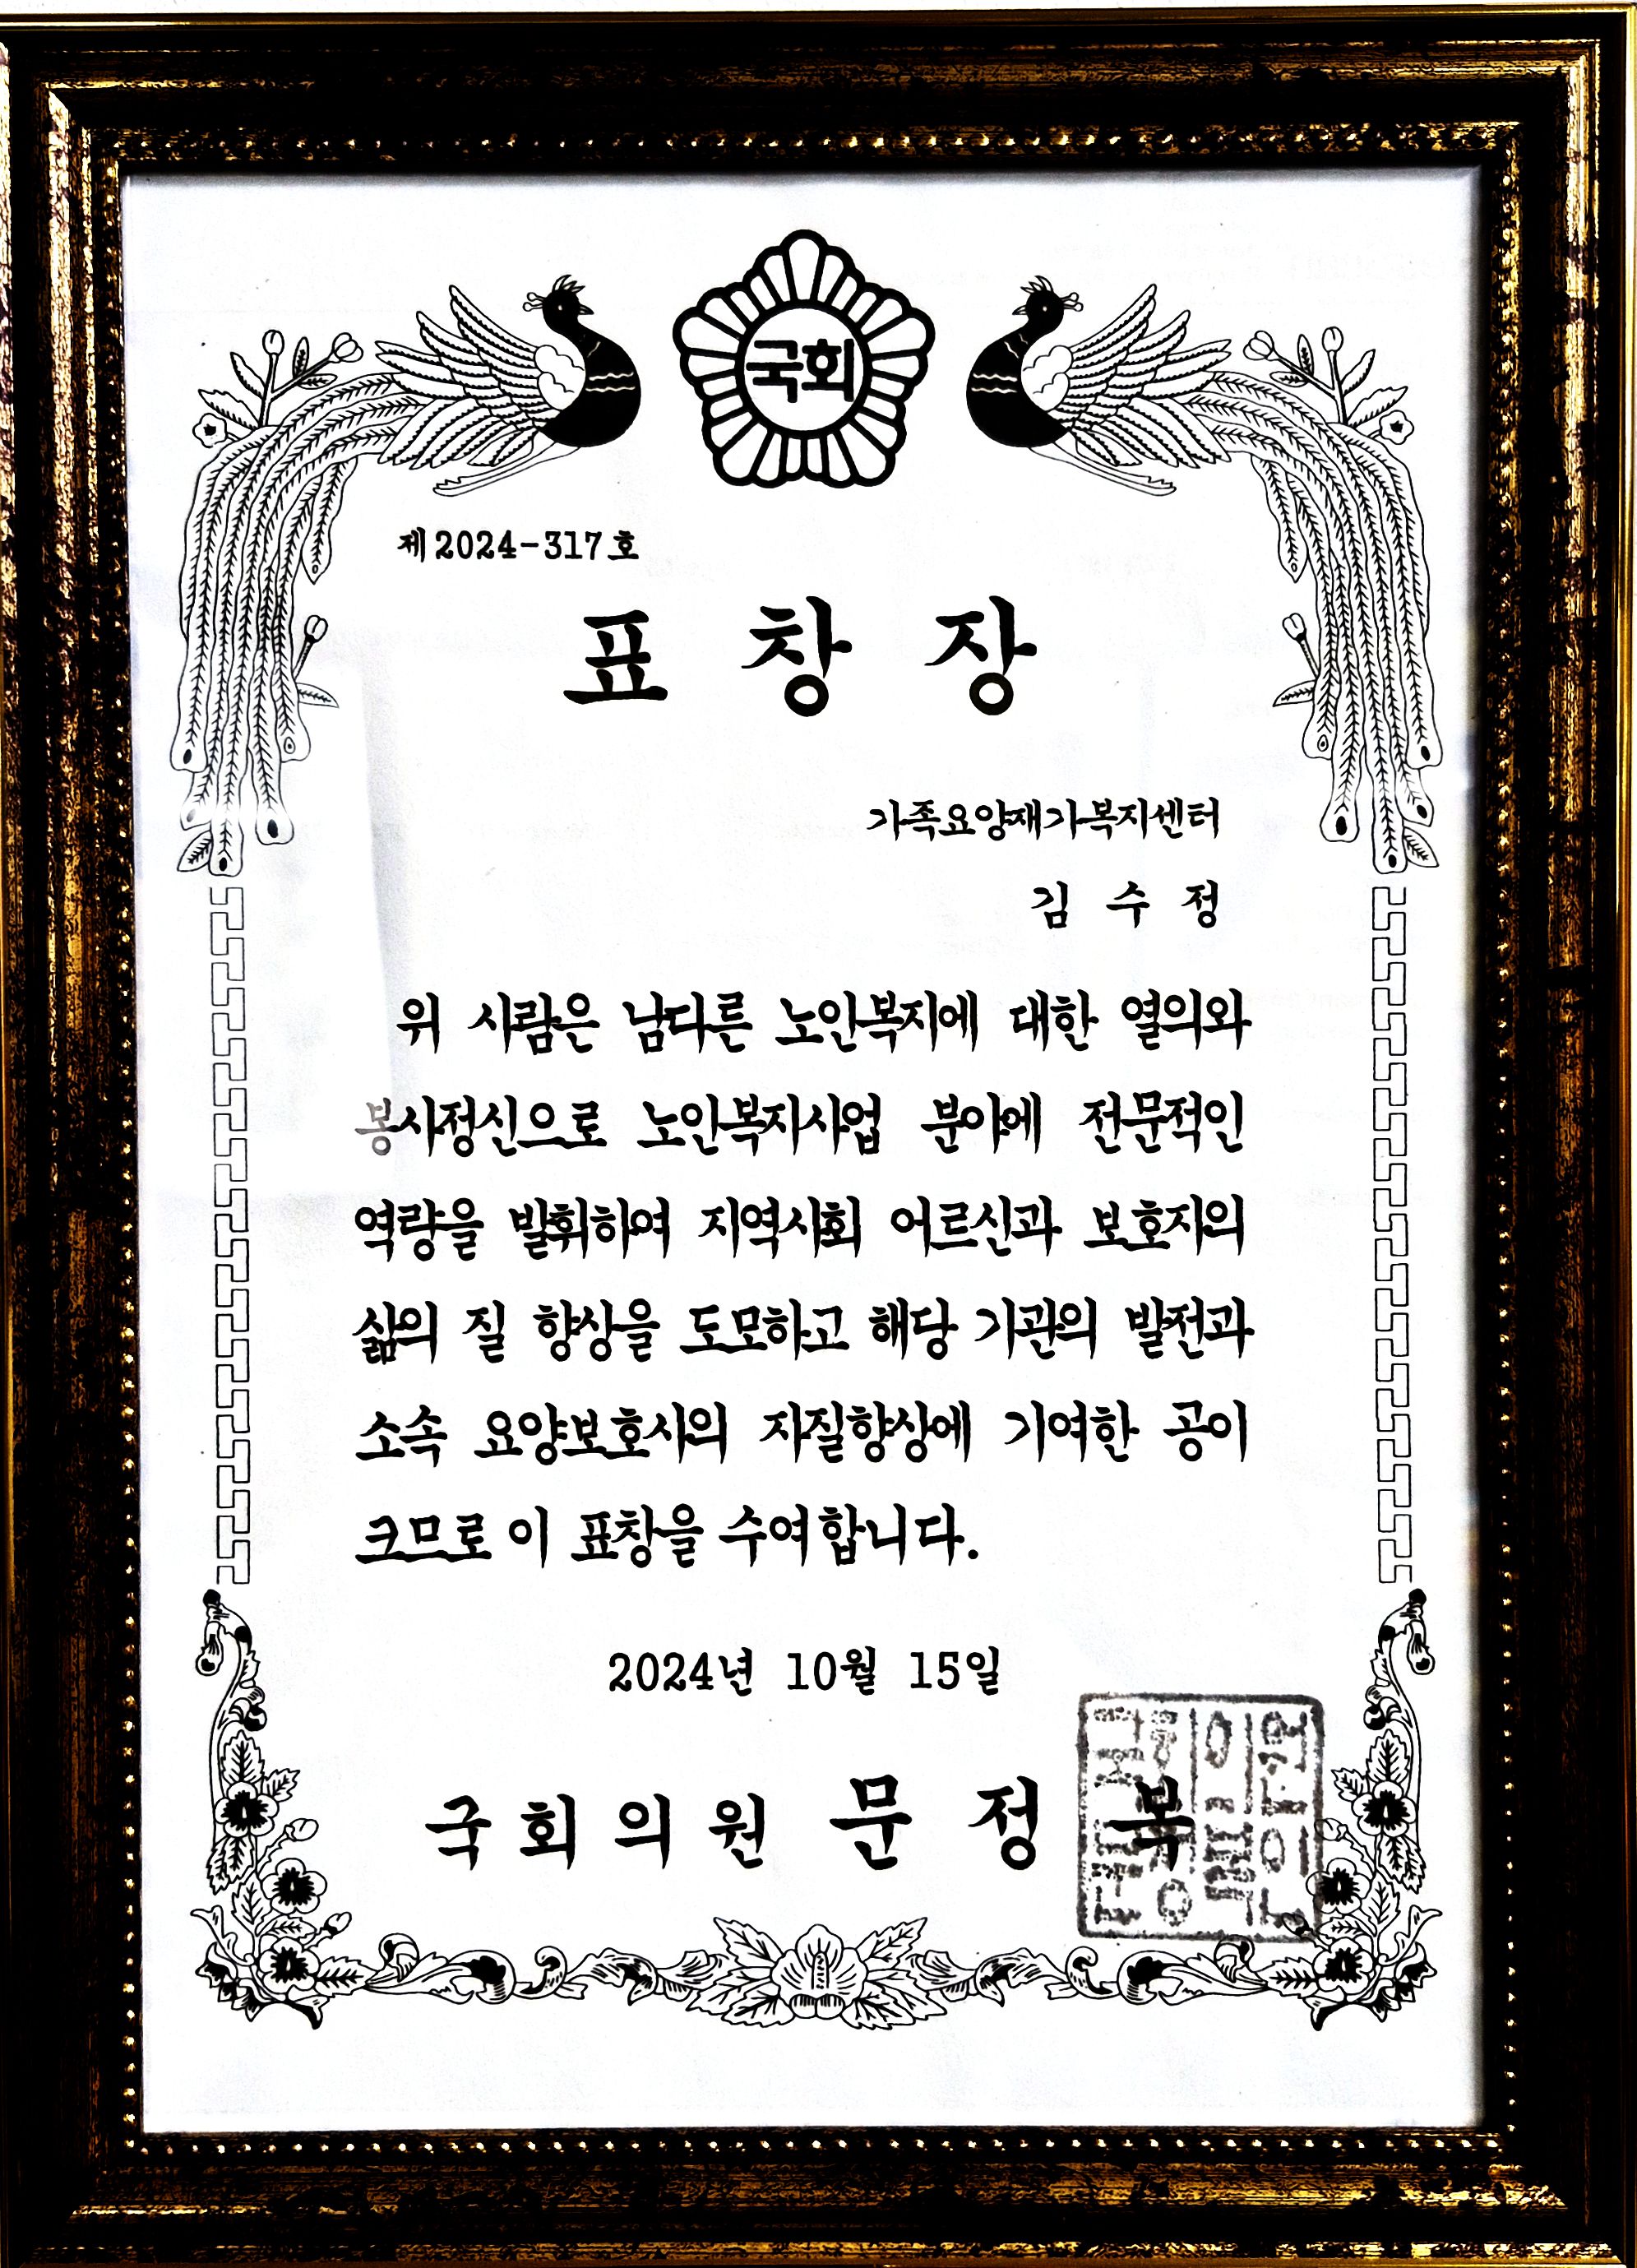 국회
제2024-317호
표 창 장
가족요양재가복지센터
김 수 정
위 사람은 남다른 노인복지에 대한 열의와
봉사정신으로 노인복지사업 분야에 전문적인
역량을 발휘하여 지역사회 어르신과 보호자의
삶의 질 향상을 도모하고 해당 기관의 발전과
소속 요양보호사의 자질향상에 기여한 공이
크므로 이 표창을 수여합니다.
2024년 10월 15일
국회의원 문 정 복